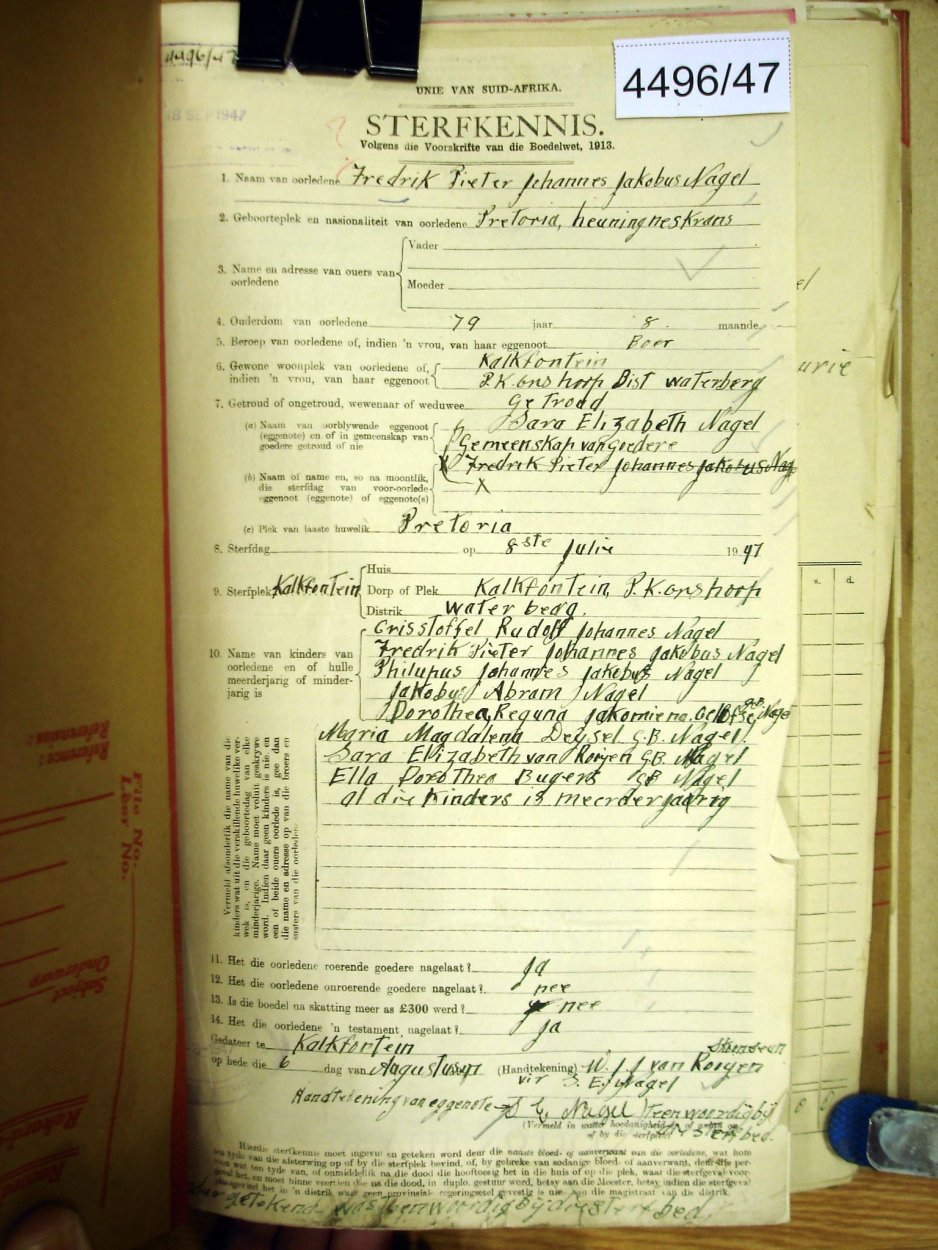 4496/47
4496/47
18 SEP 1947
UNIE VAN SUID-AFRIKA.
STERFKENNIS.
Volgens die Voorskrifte van die Boedelwet, 1913.
1. Naam van oorledene Fredrik Pieter Johannes Jakobus Nagel
2. Geboorteplek en nasionaliteit van oorledene Pretoria, heuningneskrans
3. Name en adresse van ouers van oorledene
Vader
Moeder
4. Ouderdom van oorledene 79 jaar 8 maande.
5. Beroep van oorledene of, indien 'n vrou, van haar eggenoot Boer
6. Gewone woonplek van oorledene of, Kalkfontein
indien 'n vrou, van haar eggenoot P.K. ons hoop Dist waterberg
7. Getroud of ongetroud, wewenaar of weduwee Getroud
(a) Naam van oorblywende eggenoot Sara Elizabeth Nagel
(eggenote) en of in gemeenskap van Gemeenskap van Goedere
goedere getroud of nie
Fredrik Pieter Johannes Jakobus Nag
(b) Naam of name en, so na moontlik, X
die sterfdag van voor-oorlede
eggenoot (eggenote) of eggenote(s)
(c) Plek van laaste huwelik Pretoria
8. Sterfdag op 8ste Julie 1947
9. Sterfplek Kalkfontein
Huis
Dorp of Plek Kalkfontein, P.K. ons hoop
Distrik water berg.
10. Name van kinders van
oorledene en of hulle
meerderjarig of minder-
jarig is
Crisstoffel Rudolf Johannes Nagel
Fredrik Pieter Johannes Jakobus Nagel
Philupus Johannes Jakobus Nagel
Jakobus Abram Nagel
Dorothea Reguna Jakomiena GB Nagel
Maria Magdalena Deysel G.B. Nagel.
Sara Elizabeth van Rooyen G.B. Nagel
Ella Dorothea Bugers GB Nagel
al die kinders is meerderjadrig
Vermeld afsonderlik die name van die
kinders wat uit die verskillende huwelike ver-
wek is, en die geboortedag van elke
minderjarige. Name moet voluit geskrywe
word. Indien daar geen kinders is nie en
een of beide ouers oorlede is, gee dan
die name en adresse op van die broers en
susters van die oorledene.
11. Het die oorledene roerende goedere nagelaat? Ja
12. Het die oorledene onroerende goedere nagelaat? nee
13. Is die boedel na skatting meer as £300 werd? nee
14. Het die oorledene 'n testament nagelaat? Ja
Gedateer te Kalkfontein
Skoonseun
op hede die 6 dag van Augustus (Handtekening) W. J. J. van Rooyen
vir S. E. Nagel
Handtekening van eggenote S E Nagel Teenwoordig by
(Vermeld in watter hoedanigheid,
of by die sterfplek) sterfbed.
Hierdie sterfkennis moet ingevul en geteken word deur die naaste bloed- of aanverwant van die oorledene, wat
ten tyde van die afsterwing op of by die sterfplek bevind, of, by gebreke van sodanige bloed- of aanverwant,
of die plek, waar die sterfgeval voor-
en moet binne veertien die dood, in duplo, gestuur word, hetsy aan die Meester, hetsy, indien die sterfgeval
plaasgevind het in 'n distrik waar geen provinsiale regeringsetel gevestig is nie, aan die magistraat van die distrik.
getekend was teenwoordig by die sterf bed.
s. d.
File No.
Lêer No.
Reference:
Referensies:
Subject
Onderwerp